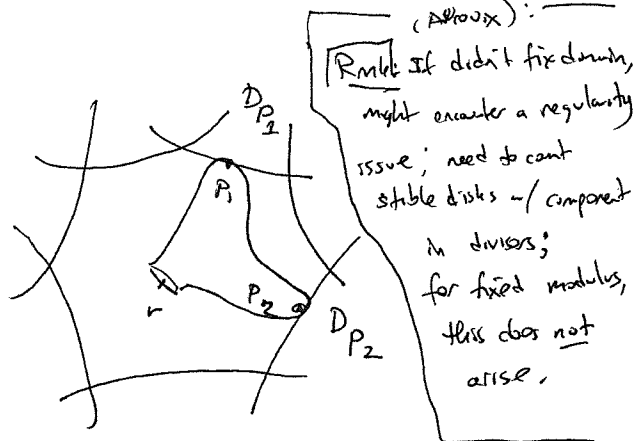 (Approx):
Rmk: If didn't fix domain,
might encounter a regularity
issue; need to count
stable disks w/ component
in divisors;
for fixed modulus,
this does not
arise.
D_{P_1}
P_1
P_2
D_{P_2}
r